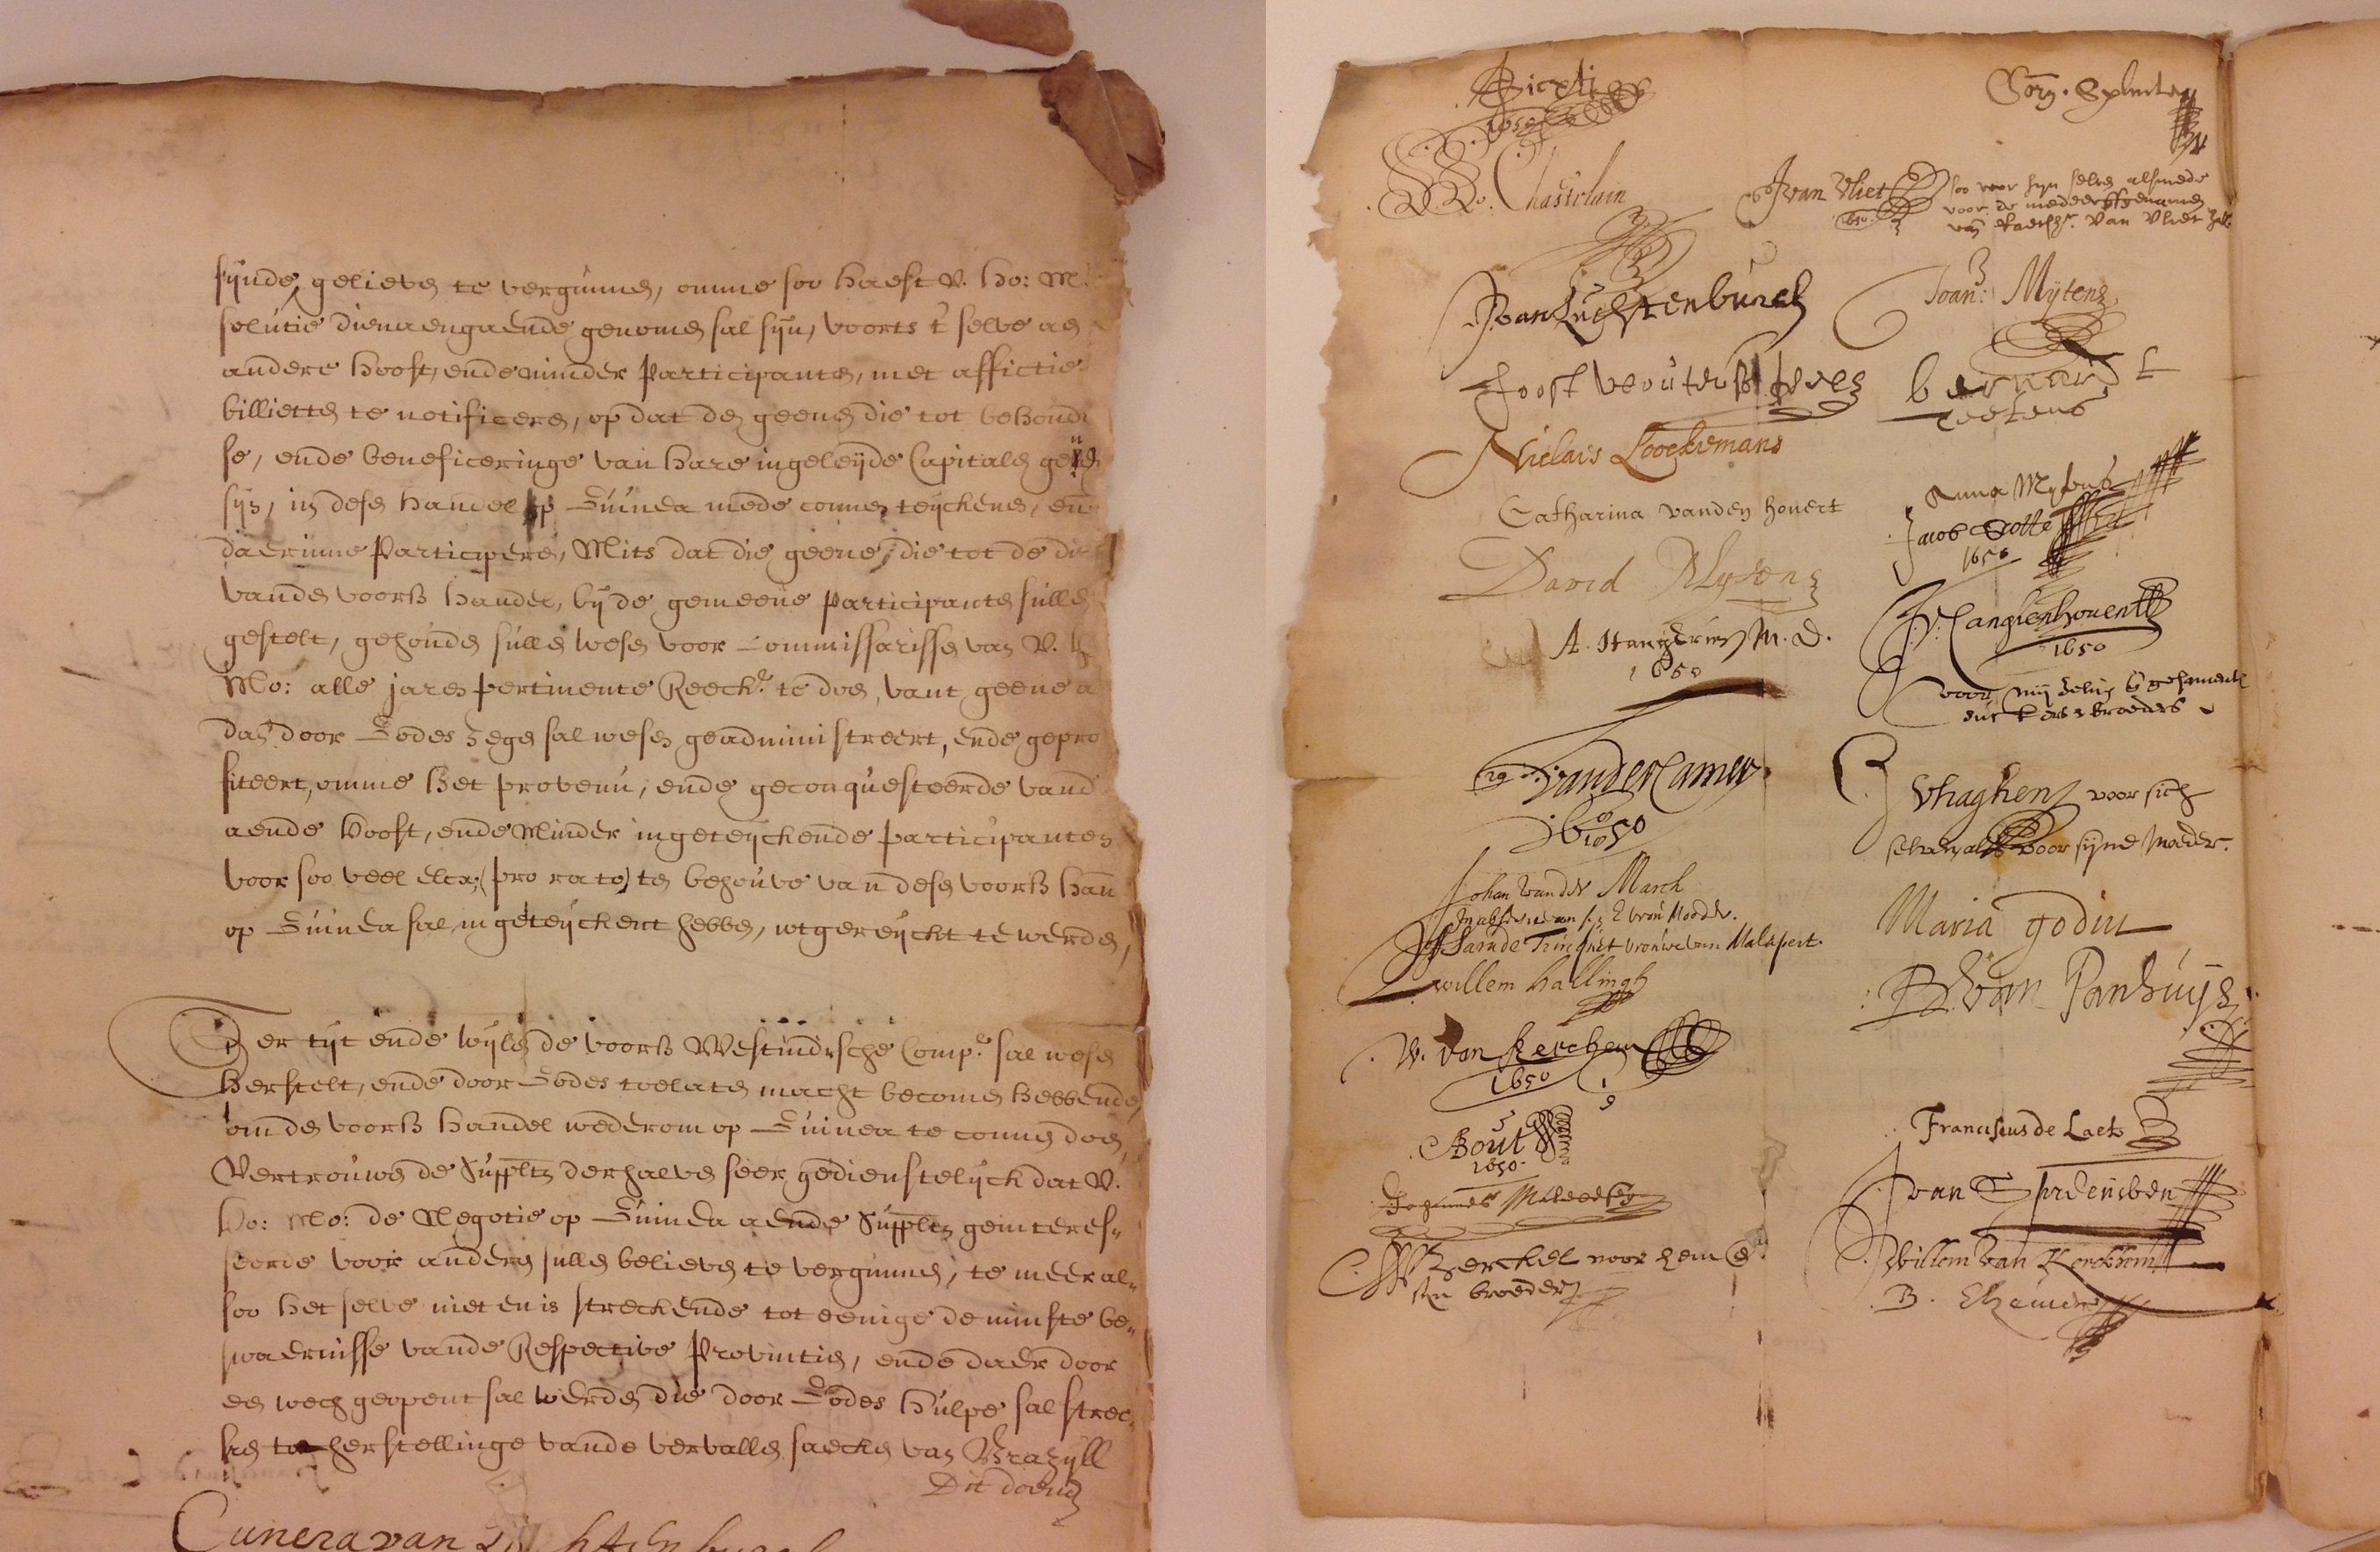 sijnde, gelieve te vergunnen, omme soo haest V. Ho: M.
solutie dienaengaende genomen sal sijn, voorts t' selve aen
andere hooft, ende minder Participanten, met affictie
billietten te notificeren, op dat de geene die tot behoude
se, ende beneficeringe van hare ingeleijde Capitalen
sijn, in dese handel op Guinea mede connen teijckenen, en
daerinne Participeren, Mits dat die geene, die tot de di
vande voorß handel, bij de gemeene participanten sullen
gestelt, gehouden sullen wesen voor Commissarissen van V. H
Mo: alle jaren pertinente Reeck.e te doen, vant geene a
dan door Godes zegen sal wesen geadministreert, ende gepro
fiteert, omme het provenu, ende geconquesteerde vand
aende Hooft, ende Minder ingeteijckende participanten
voor soo veel elcx (pro rato) ten behouve van dese voorß han
op Guinea sal ingeteijckent hebben, wtgereijckt te werden,
Ter tijt ende wijlen de voorß Westindische Comp.e sal wesen
herstelt, ende door Godes toelaten macht becomen hebbende,
om den voorß handel wederom op Guinea te connen doen,
Vertrouwen de Supplten derhalven seer gedienstelijck dat V.
Ho: Mo: de Negotie op Guinea aende Supplten geinteres„
seerde voor anderen sullen believen te vergunnen, te meer al„
soo het selve niet en is streckende tot eenige de minste be„
swaernisse vande Respective Provintien, ende daer door
een wech geopent sal werden die door Godes hulpe sal strec„
ken tot herstellinge vande vervallen saecken van Brazijll
Dit doende
Cunera van
1650
Corn. Splinter
Chastelain
J van Vliet soo voor sijn selven alsmede
voor de medeerffgenamen
van Vliet
Joan Luchtenburch
Joan: Mytens
Joost
bernardt
Niclaes Loockemans
Anna Mytens
Catharina vanden hovert
Jacob Cotte
1650
David Mytens
J. V. Cangienhouent
1650
A. Stangerius M. D.
1650
voor mij selven
broeders
vander Camer
1650
Vhaghen voor sich
selven als voor sijne Moeder.
Johan vander March
vrou Moeder.
Sara de Trinquet vrouwe van Malapert.
Maria godin
willem hallingh
van Panhuijs
W. van kerchem
1650
Bout
1650
Franciscus de Laet
Johannes
Berckel voor hem en
sijn broeder
Willem van Kerckhem
B.